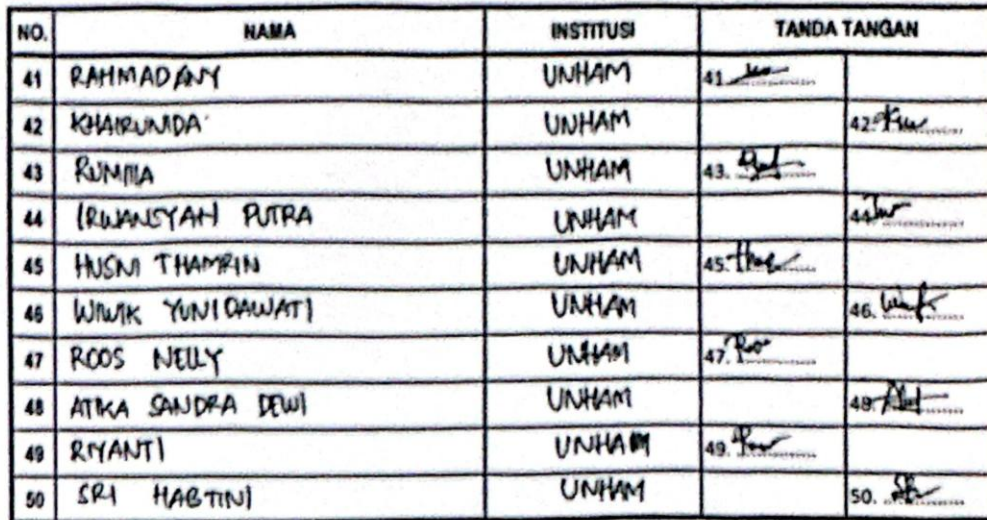 NO. NAMA INSTITUSI TANDA TANGAN
41 RAHMADANY UNHAM 41
42 KHAIRUNIDA UNHAM 42.
43 RUMIIA UNHAM 43.
44 IRWANSYAH PUTRA UNHAM 44
45 HUSNI THAMRIN UNHAM 45.
46 WIWIK YUNIDAWATI UNHAM 46.
47 ROOS NELLY UNHAM 47.
48 ATIKA SANDRA DEWI UNHAM 48.
49 RIYANTI UNHAM 49.
50 SRI HABTINI UNHAM 50.